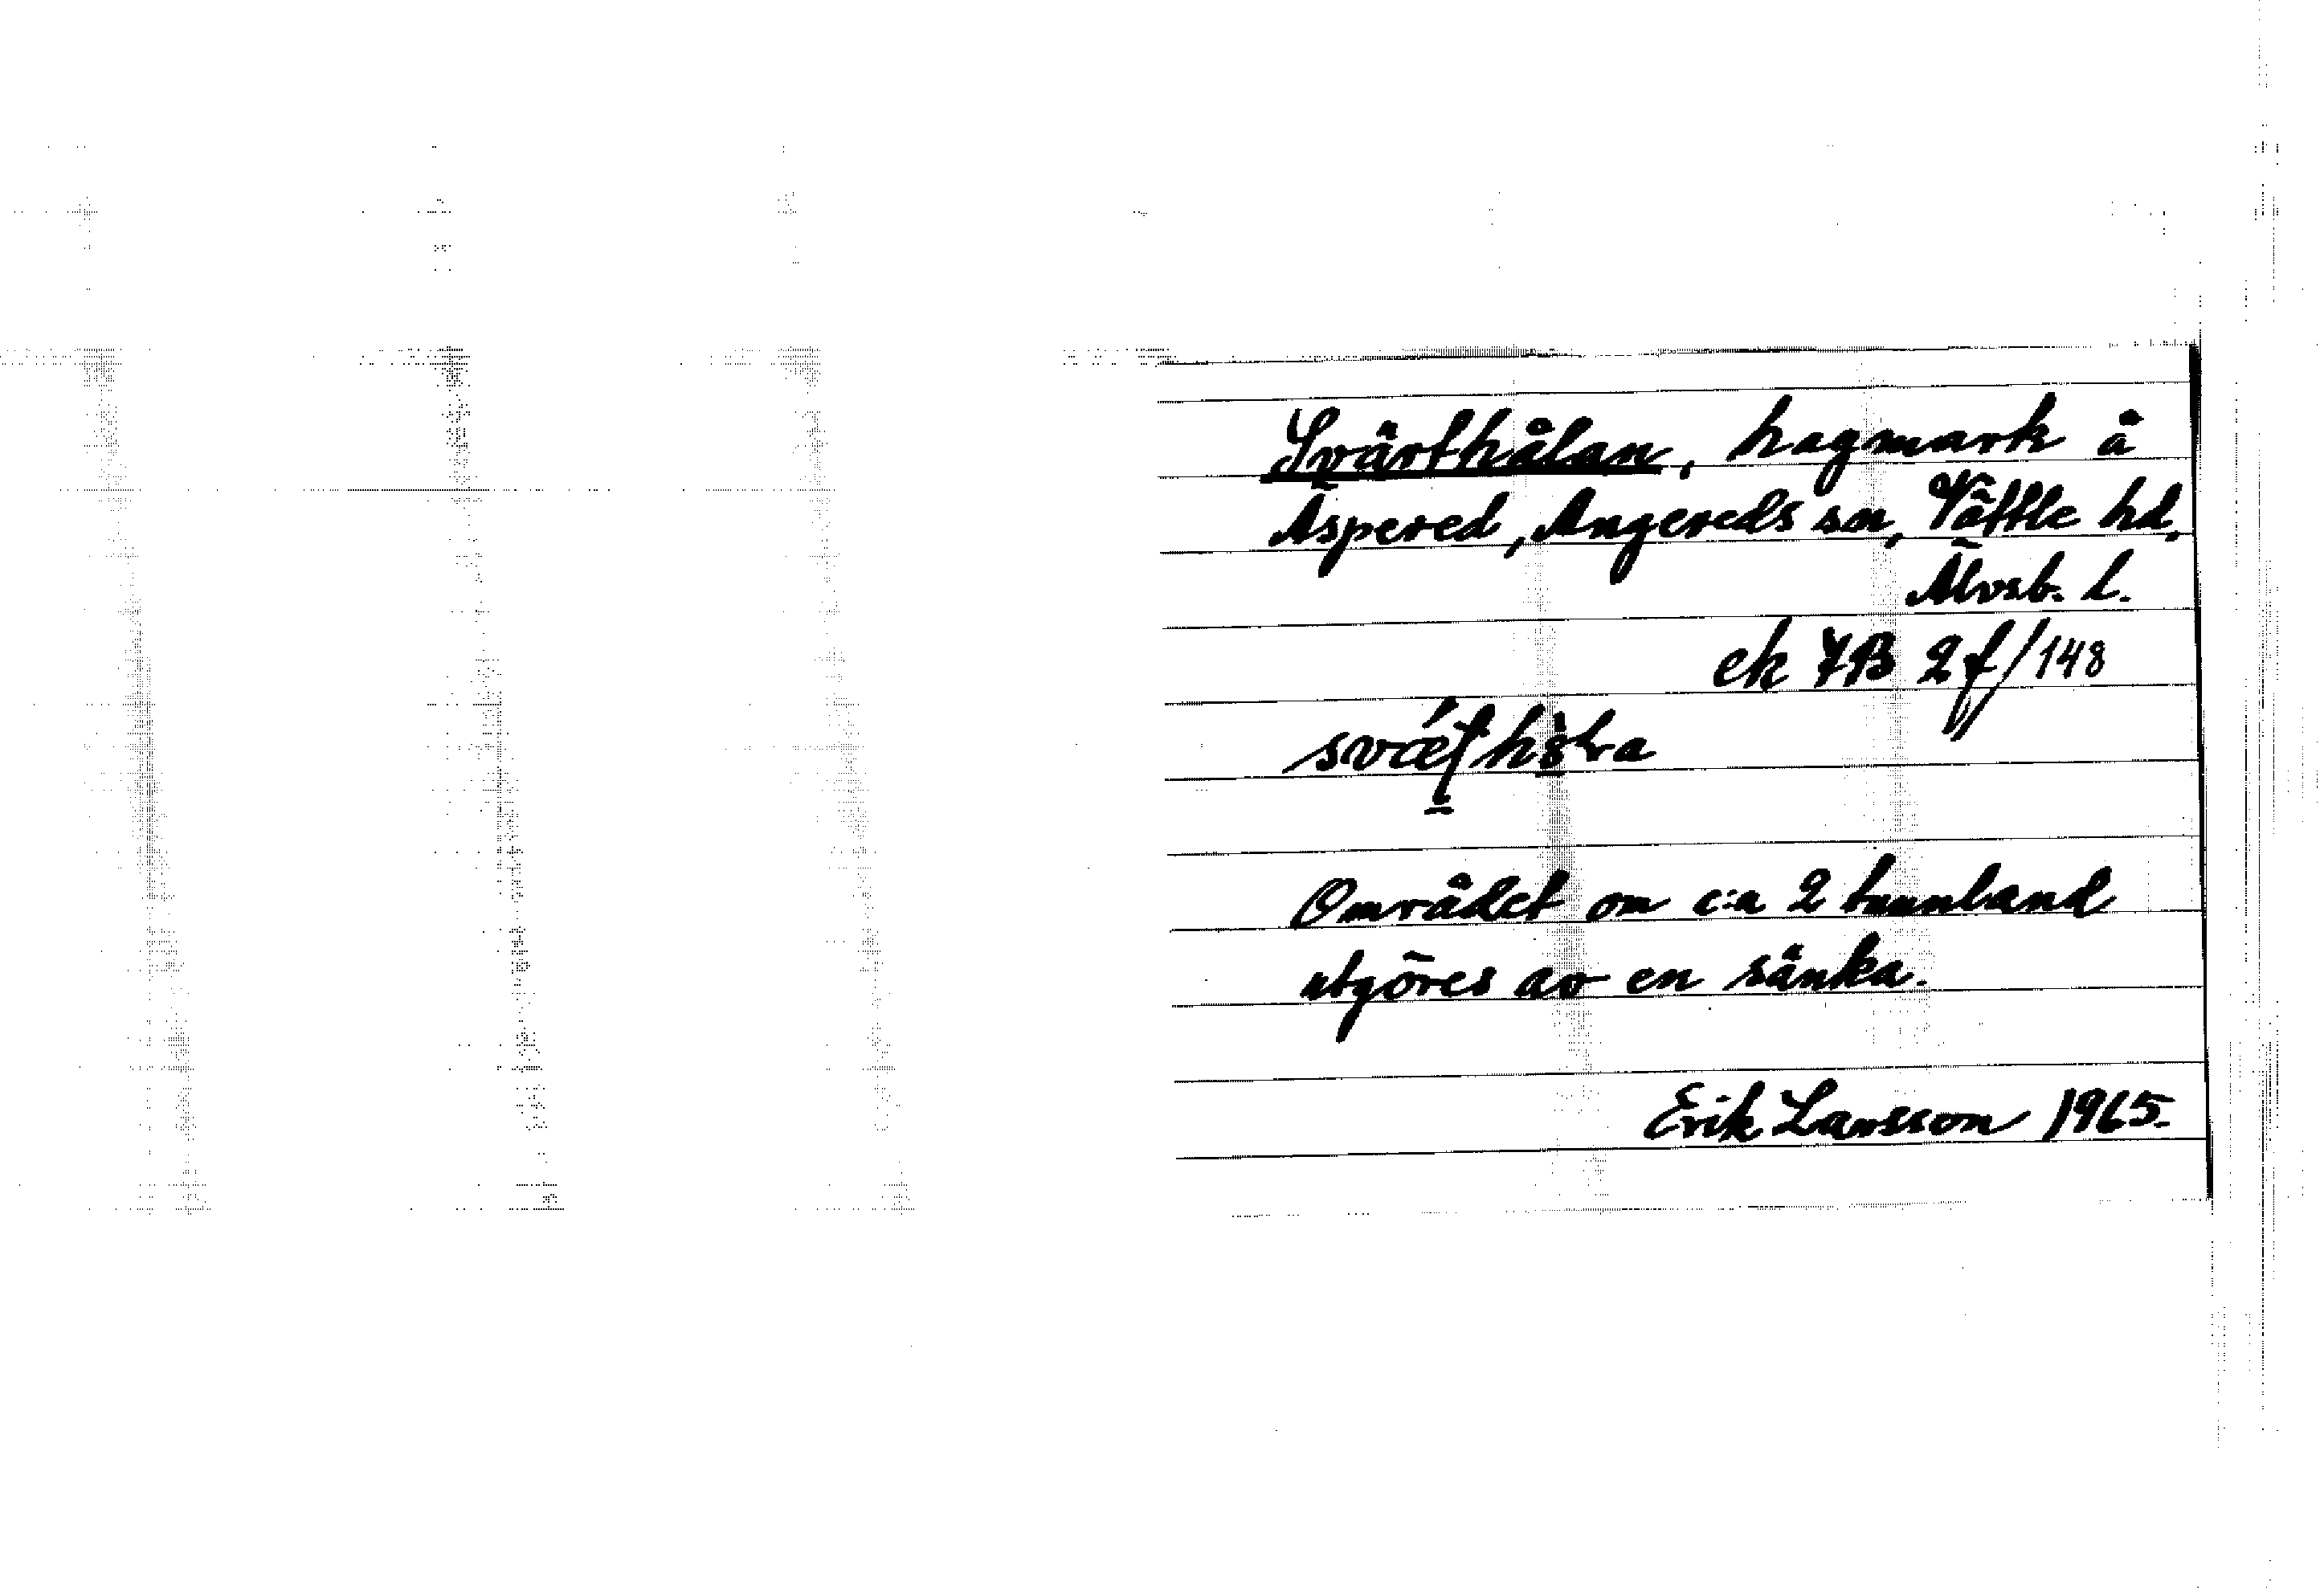 Svärthålan, hagmark å
Äspered, Angereds sn, Vättle hd,
Älvsb. L.
ek 7B 2f/148
Området om c:a 2 tunnland
utgöres av en sänka.
Erik Larsson 1965.